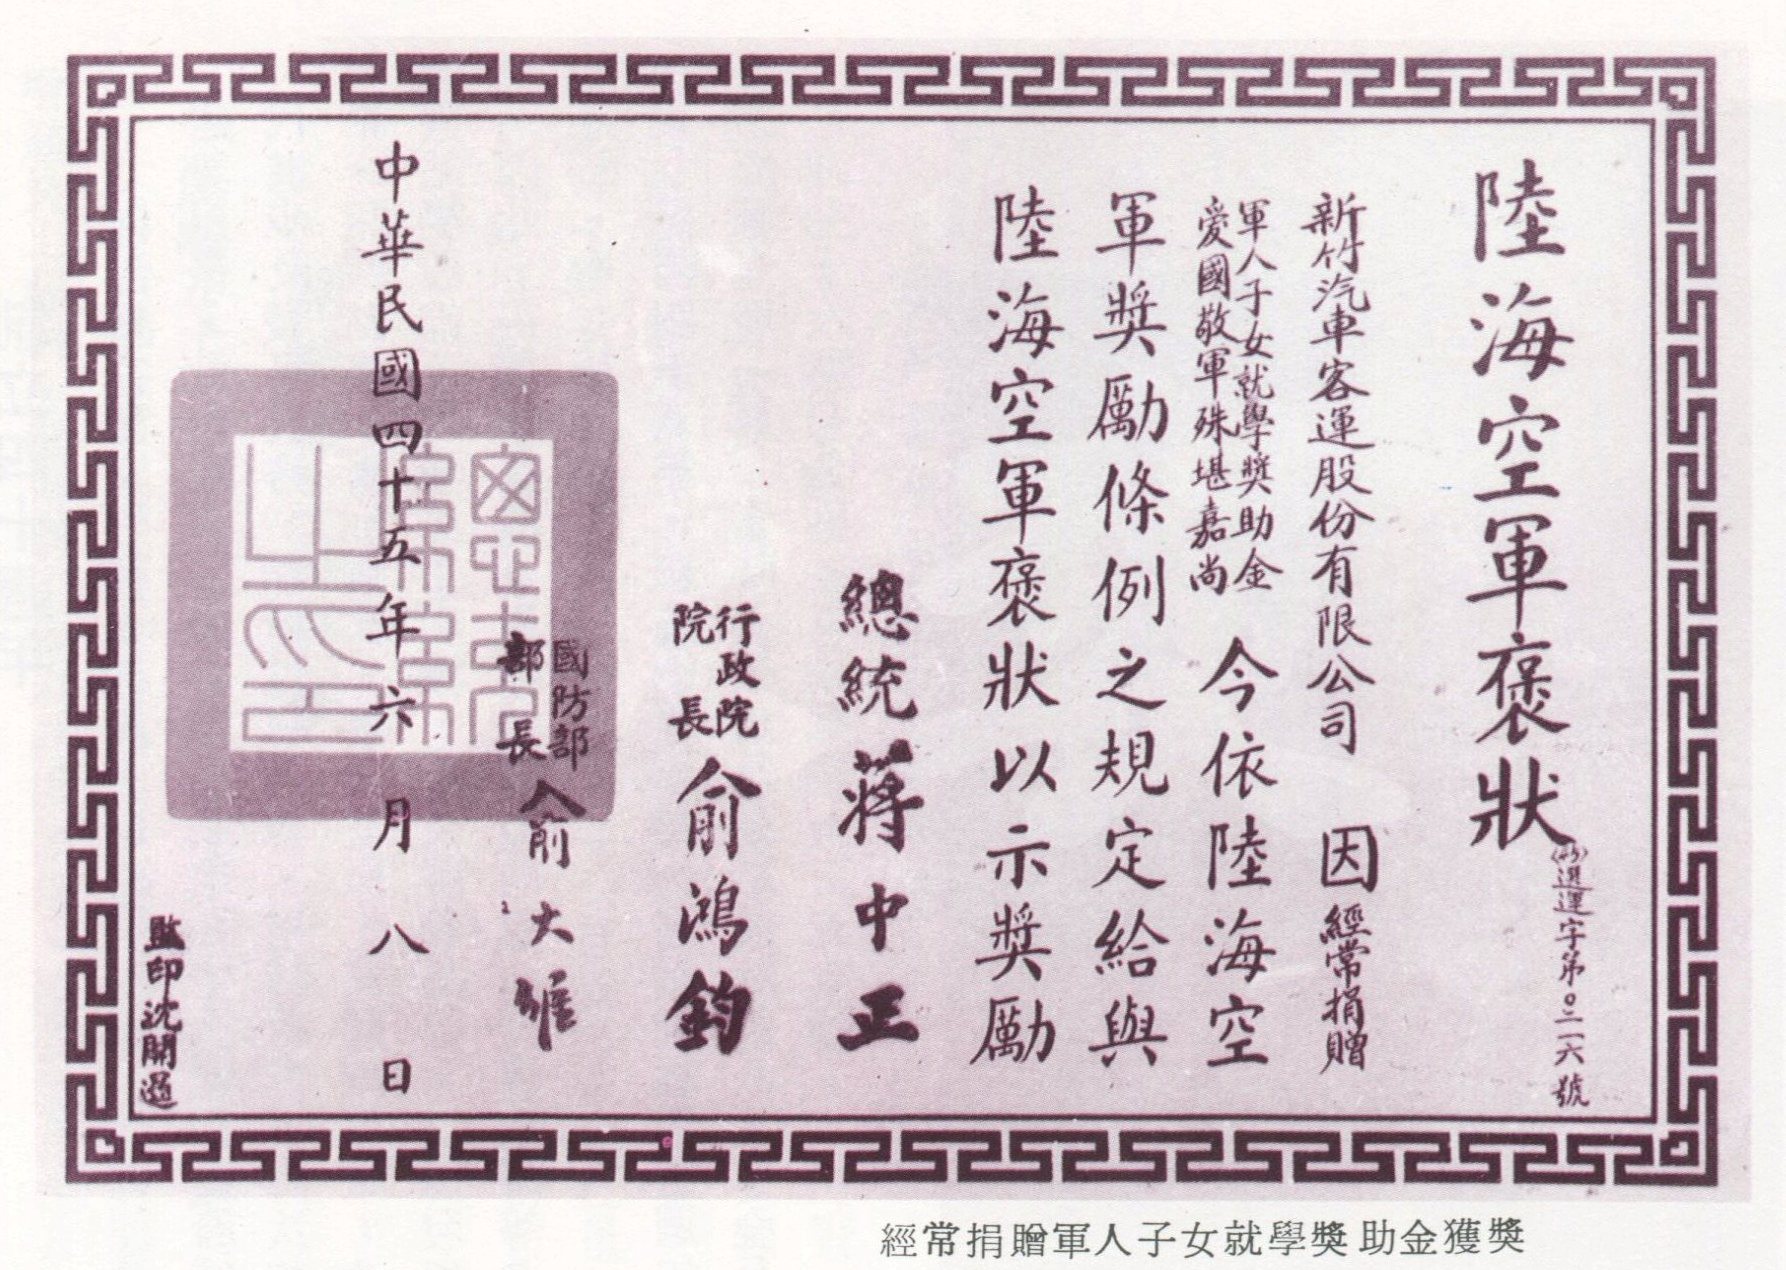 陸海空軍褒狀
選運字第〇二一六號
新竹汽車客運股份有限公司 因經常捐贈
軍人子女就學獎助金
愛國敬軍殊堪嘉尚
今依陸海空
軍獎勵條例之規定給與
陸海空軍褒狀以示獎勵
總統 蔣中正
行政院
院長
俞鴻鈞
國防部
部長
俞大維
中華民國四十五年六月八日
監印沈開過
經常捐贈軍人子女就學獎助金獲獎